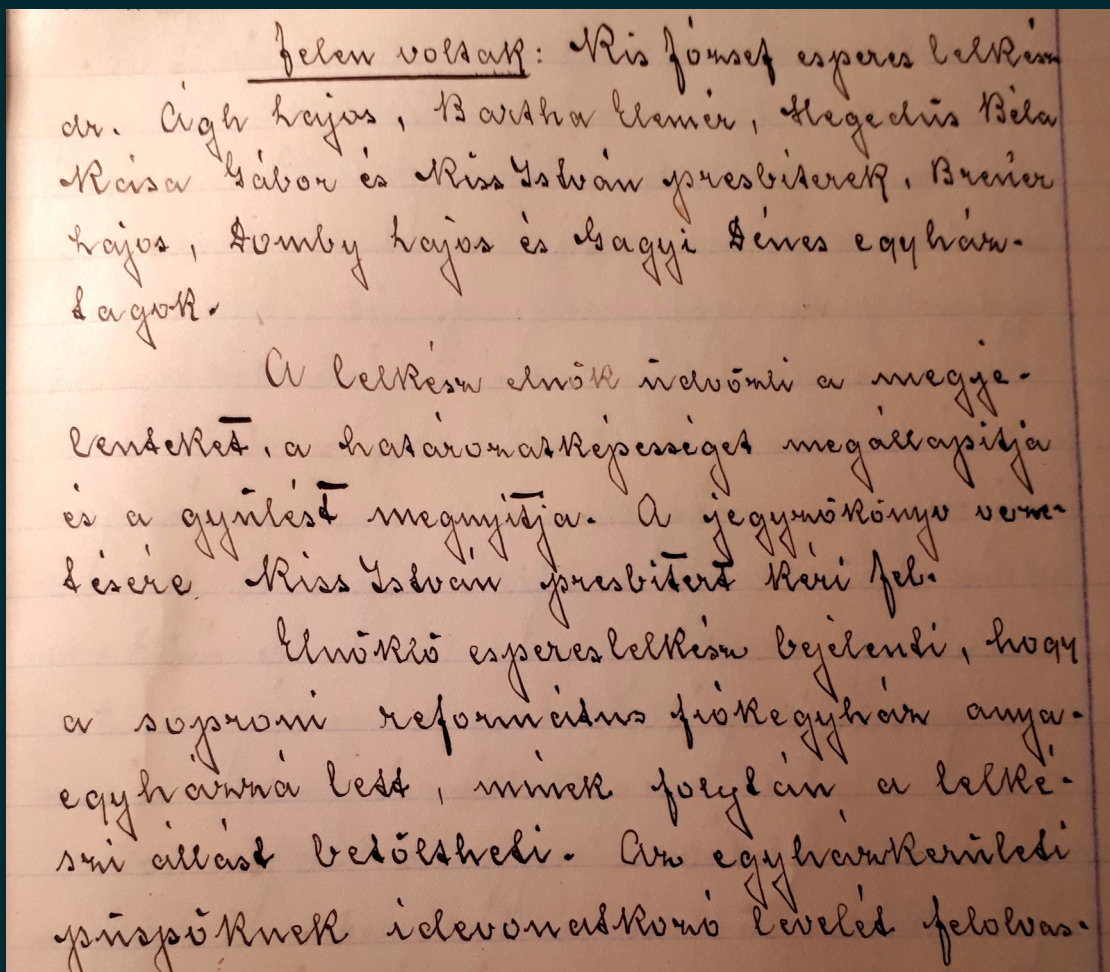 Jelen voltak: Kis József esperes lelkész
dr. Ágh Lajos, Bartha Elemér, Hegedűs Béla
Kása Gábor és Kiss István presbiterek, Breuer
Lajos, Domby Lajos és Gagyi Dénes egyház-
tagok.
A lelkész elnök üdvözli a megje-
lenteket, a határozatképességet megállapítja
és a gyűlést megnyitja. A jegyzőkönyv veze-
tésére Kiss István presbitert kéri fel.
Elnöklő espereslelkész bejelenti, hogy
a soproni református fiókegyház anya-
egyházzá lett, minek folytán a lelké-
szi állást betöltheti. Az egyházkerületi
püspöknek idevonatkozó levelét felolvas-